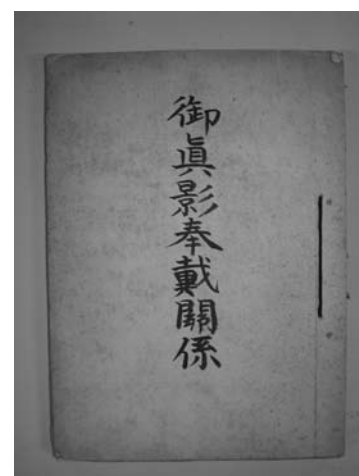 御眞影奉戴關係